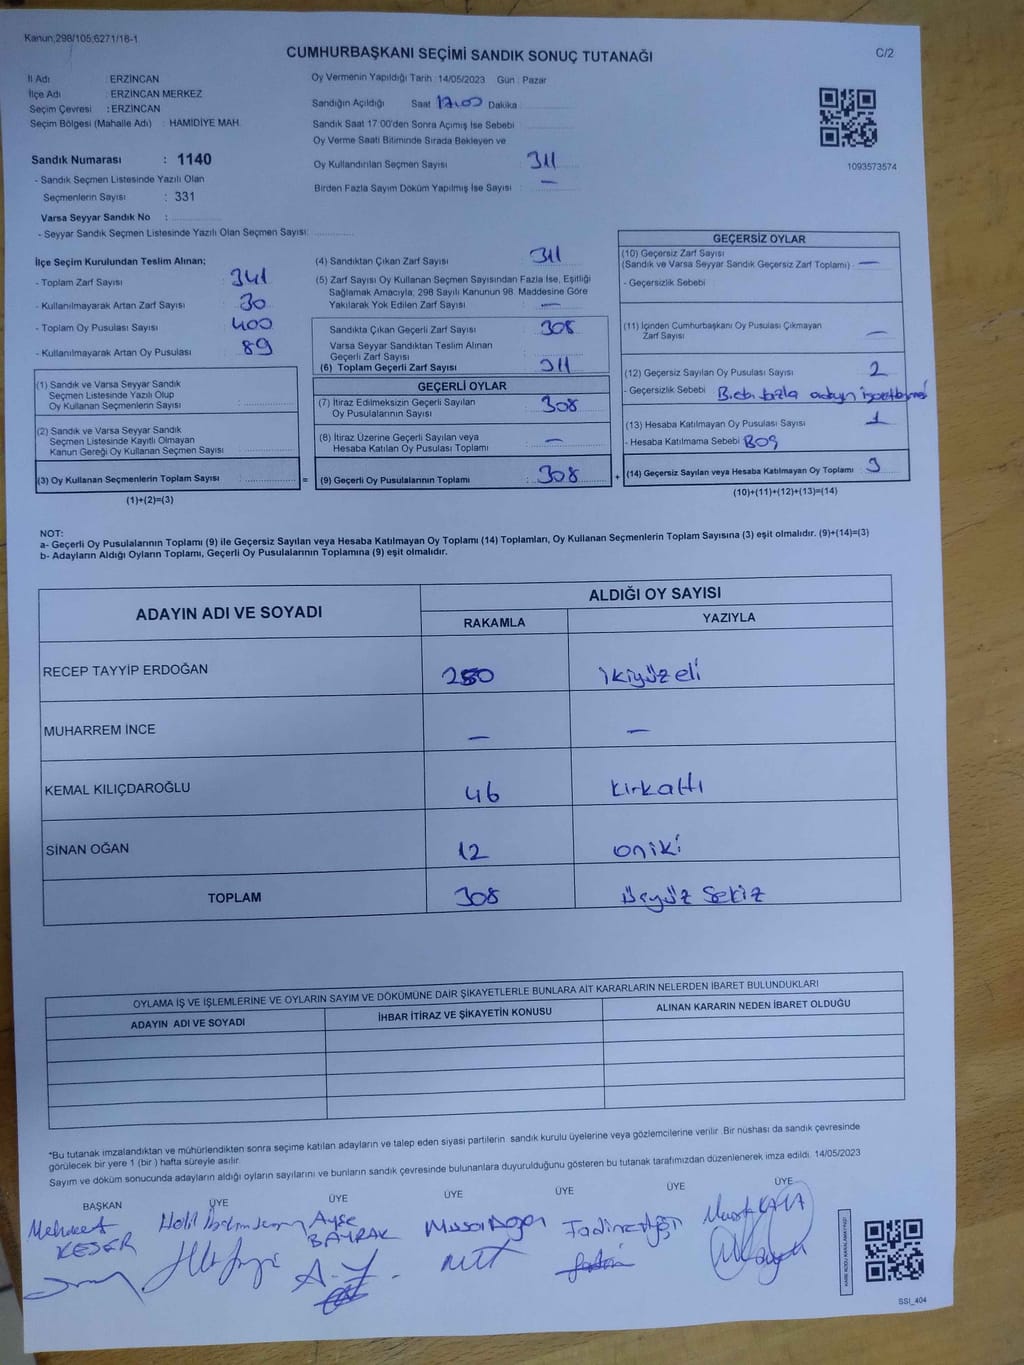 Kanun;298/105;6271/18-1
CUMHURBAŞKANI SEÇİMİ SANDIK SONUÇ TUTANAĞI
C/2
İl Adı : ERZİNCAN
İlçe Adı : ERZİNCAN MERKEZ
Seçim Çevresi : ERZİNCAN
Seçim Bölgesi (Mahalle Adı) : HAMİDİYE MAH.
Sandık Numarası : 1140
- Sandık Seçmen Listesinde Yazılı Olan
Seçmenlerin Sayısı : 331
Varsa Seyyar Sandık No :
- Seyyar Sandık Seçmen Listesinde Yazılı Olan Seçmen Sayısı:
Oy Vermenin Yapıldığı Tarih : 14/05/2023 Gün : Pazar
Sandığın Açıldığı Saat 17.00 Dakika
Sandık Saat 17:00'den Sonra Açımış İse Sebebi :
Oy Verme Saati Bitiminde Sırada Bekleyen ve
Oy Kullandırılan Seçmen Sayısı : 311
Birden Fazla Sayım Döküm Yapılmış İse Sayısı : —
1093573574
İlçe Seçim Kurulundan Teslim Alınan;
- Toplam Zarf Sayısı : 341
- Kullanılmayarak Artan Zarf Sayısı : 30
- Toplam Oy Pusulası Sayısı : 400
- Kullanılmayarak Artan Oy Pusulası : 89
(1) Sandık ve Varsa Seyyar Sandık
Seçmen Listesinde Yazılı Olup
Oy Kullanan Seçmenlerin Sayısı :
(2) Sandık ve Varsa Seyyar Sandık
Seçmen Listesinde Kayıtlı Olmayan
Kanun Gereği Oy Kullanan Seçmen Sayısı :
(3) Oy Kullanan Seçmenlerin Toplam Sayısı : =
(1)+(2)=(3)
(4) Sandıktan Çıkan Zarf Sayısı : 311
(5) Zarf Sayısı Oy Kullanan Seçmen Sayısından Fazla İse, Eşitliği
Sağlamak Amacıyla; 298 Sayılı Kanunun 98. Maddesine Göre
Yakılarak Yok Edilen Zarf Sayısı : —
Sandıkta Çıkan Geçerli Zarf Sayısı : 308
Varsa Seyyar Sandıktan Teslim Alınan
Geçerli Zarf Sayısı :
(6) Toplam Geçerli Zarf Sayısı : 311
GEÇERLİ OYLAR
(7) İtiraz Edilmeksizin Geçerli Sayılan
Oy Pusulalarının Sayısı : 308
(8) İtiraz Üzerine Geçerli Sayılan veya
Hesaba Katılan Oy Pusulası Toplamı : —
(9) Geçerli Oy Pusulalarının Toplamı : 308 +
GEÇERSİZ OYLAR
(10) Geçersiz Zarf Sayısı
(Sandık ve Varsa Seyyar Sandık Geçersiz Zarf Toplamı) : —
- Geçersizlik Sebebi :
(11) İçinden Cumhurbaşkanı Oy Pusulası Çıkmayan
Zarf Sayısı : —
(12) Geçersiz Sayılan Oy Pusulası Sayısı : 2
- Geçersizlik Sebebi : fazla
(13) Hesaba Katılmayan Oy Pusulası Sayısı : 1
- Hesaba Katılmama Sebebi : BOŞ
(14) Geçersiz Sayılan veya Hesaba Katılmayan Oy Toplamı : 3
(10)+(11)+(12)+(13)=(14)
NOT:
a- Geçerli Oy Pusulalarının Toplamı (9) ile Geçersiz Sayılan veya Hesaba Katılmayan Oy Toplamı (14) Toplamları, Oy Kullanan Seçmenlerin Toplam Sayısına (3) eşit olmalıdır. (9)+(14)=(3)
b- Adayların Aldığı Oyların Toplamı, Geçerli Oy Pusulalarının Toplamına (9) eşit olmalıdır.
ADAYIN ADI VE SOYADI
ALDIĞI OY SAYISI
RAKAMLA YAZIYLA
RECEP TAYYİP ERDOĞAN 250 ikiyüzeli
MUHARREM İNCE — —
KEMAL KILIÇDAROĞLU 46 kırkaltı
SİNAN OĞAN 12 oniki
TOPLAM 308 üçyüz sekiz
OYLAMA İŞ VE İŞLEMLERİNE VE OYLARIN SAYIM VE DÖKÜMÜNE DAİR ŞİKAYETLERLE BUNLARA AİT KARARLARIN NELERDEN İBARET BULUNDUKLARI
ADAYIN ADI VE SOYADI İHBAR İTİRAZ VE ŞİKAYETİN KONUSU ALINAN KARARIN NEDEN İBARET OLDUĞU
*Bu tutanak imzalandıktan ve mühürlendikten sonra seçime katılan adayların ve talep eden siyasi partilerin sandık kurulu üyelerine veya gözlemcilerine verilir. Bir nüshası da sandık çevresinde
görülecek bir yere 1 (bir ) hafta süreyle asılır.
Sayım ve döküm sonucunda adayların aldığı oyların sayılarını ve bunların sandık çevresinde bulunanlara duyurulduğunu gösteren bu tutanak tarafımızdan düzenlenerek imza edildi. 14/05/2023
BAŞKAN ÜYE ÜYE ÜYE ÜYE ÜYE ÜYE
Mehmet Halil Ayşe Musa Mustafa KAYA
KESER BAYRAK
SSİ_404